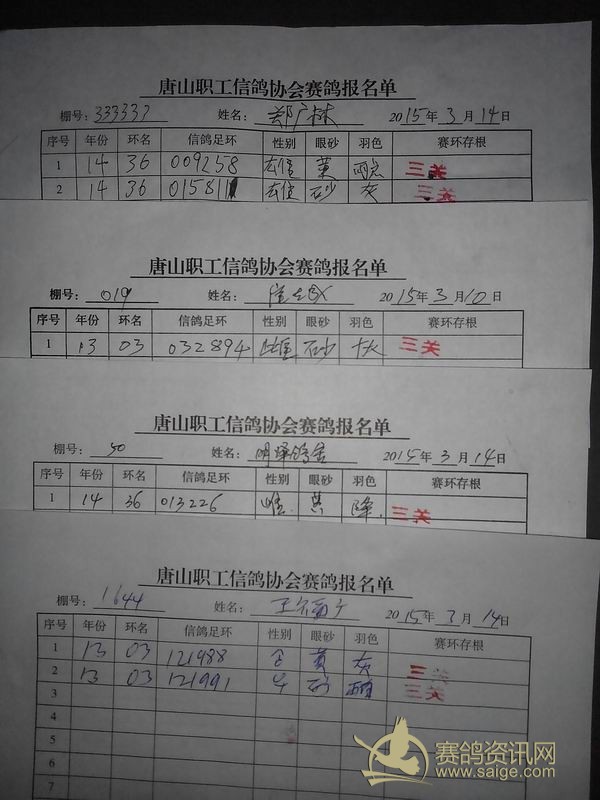 唐山职工信鸽协会赛鸽报名单
棚号: 333333 姓名: 郑广林 2015年3月14日
序号 年份 环名 信鸽足环 性别 眼砂 羽色 赛环存根
1 14 36 009258 雄 黄 三关
2 14 36 01581 雄 砂 灰 三关
唐山职工信鸽协会赛鸽报名单
棚号: 019 姓名: 2015年3月10日
序号 年份 环名 信鸽足环 性别 眼砂 羽色 赛环存根
1 13 03 032894 雄 砂 灰 三关
唐山职工信鸽协会赛鸽报名单
棚号: 50 姓名: 明泽鸽舍 2015年3月14日
序号 年份 环名 信鸽足环 性别 眼砂 羽色 赛环存根
1 14 36 013226 雌 黄 绛 三关
唐山职工信鸽协会赛鸽报名单
棚号: 1644 姓名: 2015年3月14日
序号 年份 环名 信鸽足环 性别 眼砂 羽色 赛环存根
1 13 03 121988 黄 灰 三关
2 13 03 121991 砂 三关
3
4
5
6
7
赛鸽资讯网
www.saige.com